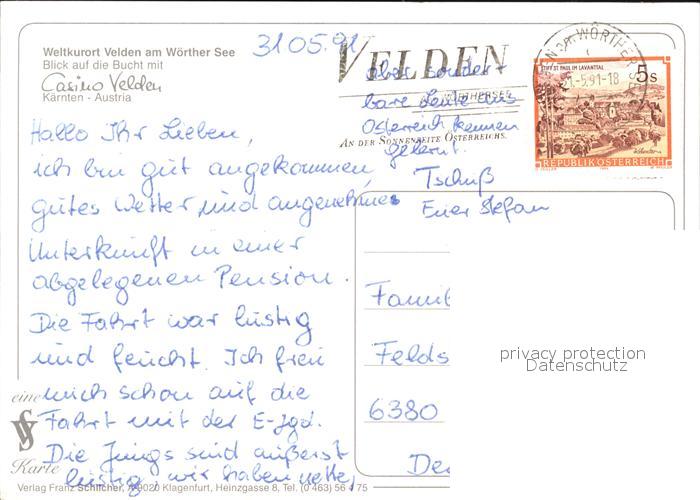 Weltkurort Velden am Wörther See
Blick auf die Bucht mit
Casino Velden
Kärnten - Austria
31.05.91
VELDEN
AM WÖRTHERSEE
AN DER SONNENSEITE ÖSTERREICHS.
-5.91-18
STIFT ST. PAUL IM LAVANTTAL
5s
REPUBLIK ÖSTERREICH
Hallo Ihr Lieben,
ich bin gut angekommen,
gutes Wetter und angenehmes
Unterkunft in einer
abgelegenen Pension.
Die Fahrt war lustig
und feucht. Ich freu
mich schon auf die
Fahrt mit der E-Jgd.
Die Jungs sind äußerst
lustig wir haben nette,
aber sonder-
bare Leute aus
Österreich kennen
gelernt.
Tschuß
Euer Stefan
Famil
Felds
6380
De
privacy protection
Datenschutz
eine
Karte
Verlag Franz Schilcher, A-9020 Klagenfurt, Heinzgasse 8, Tel. (0 463) 56 4 75